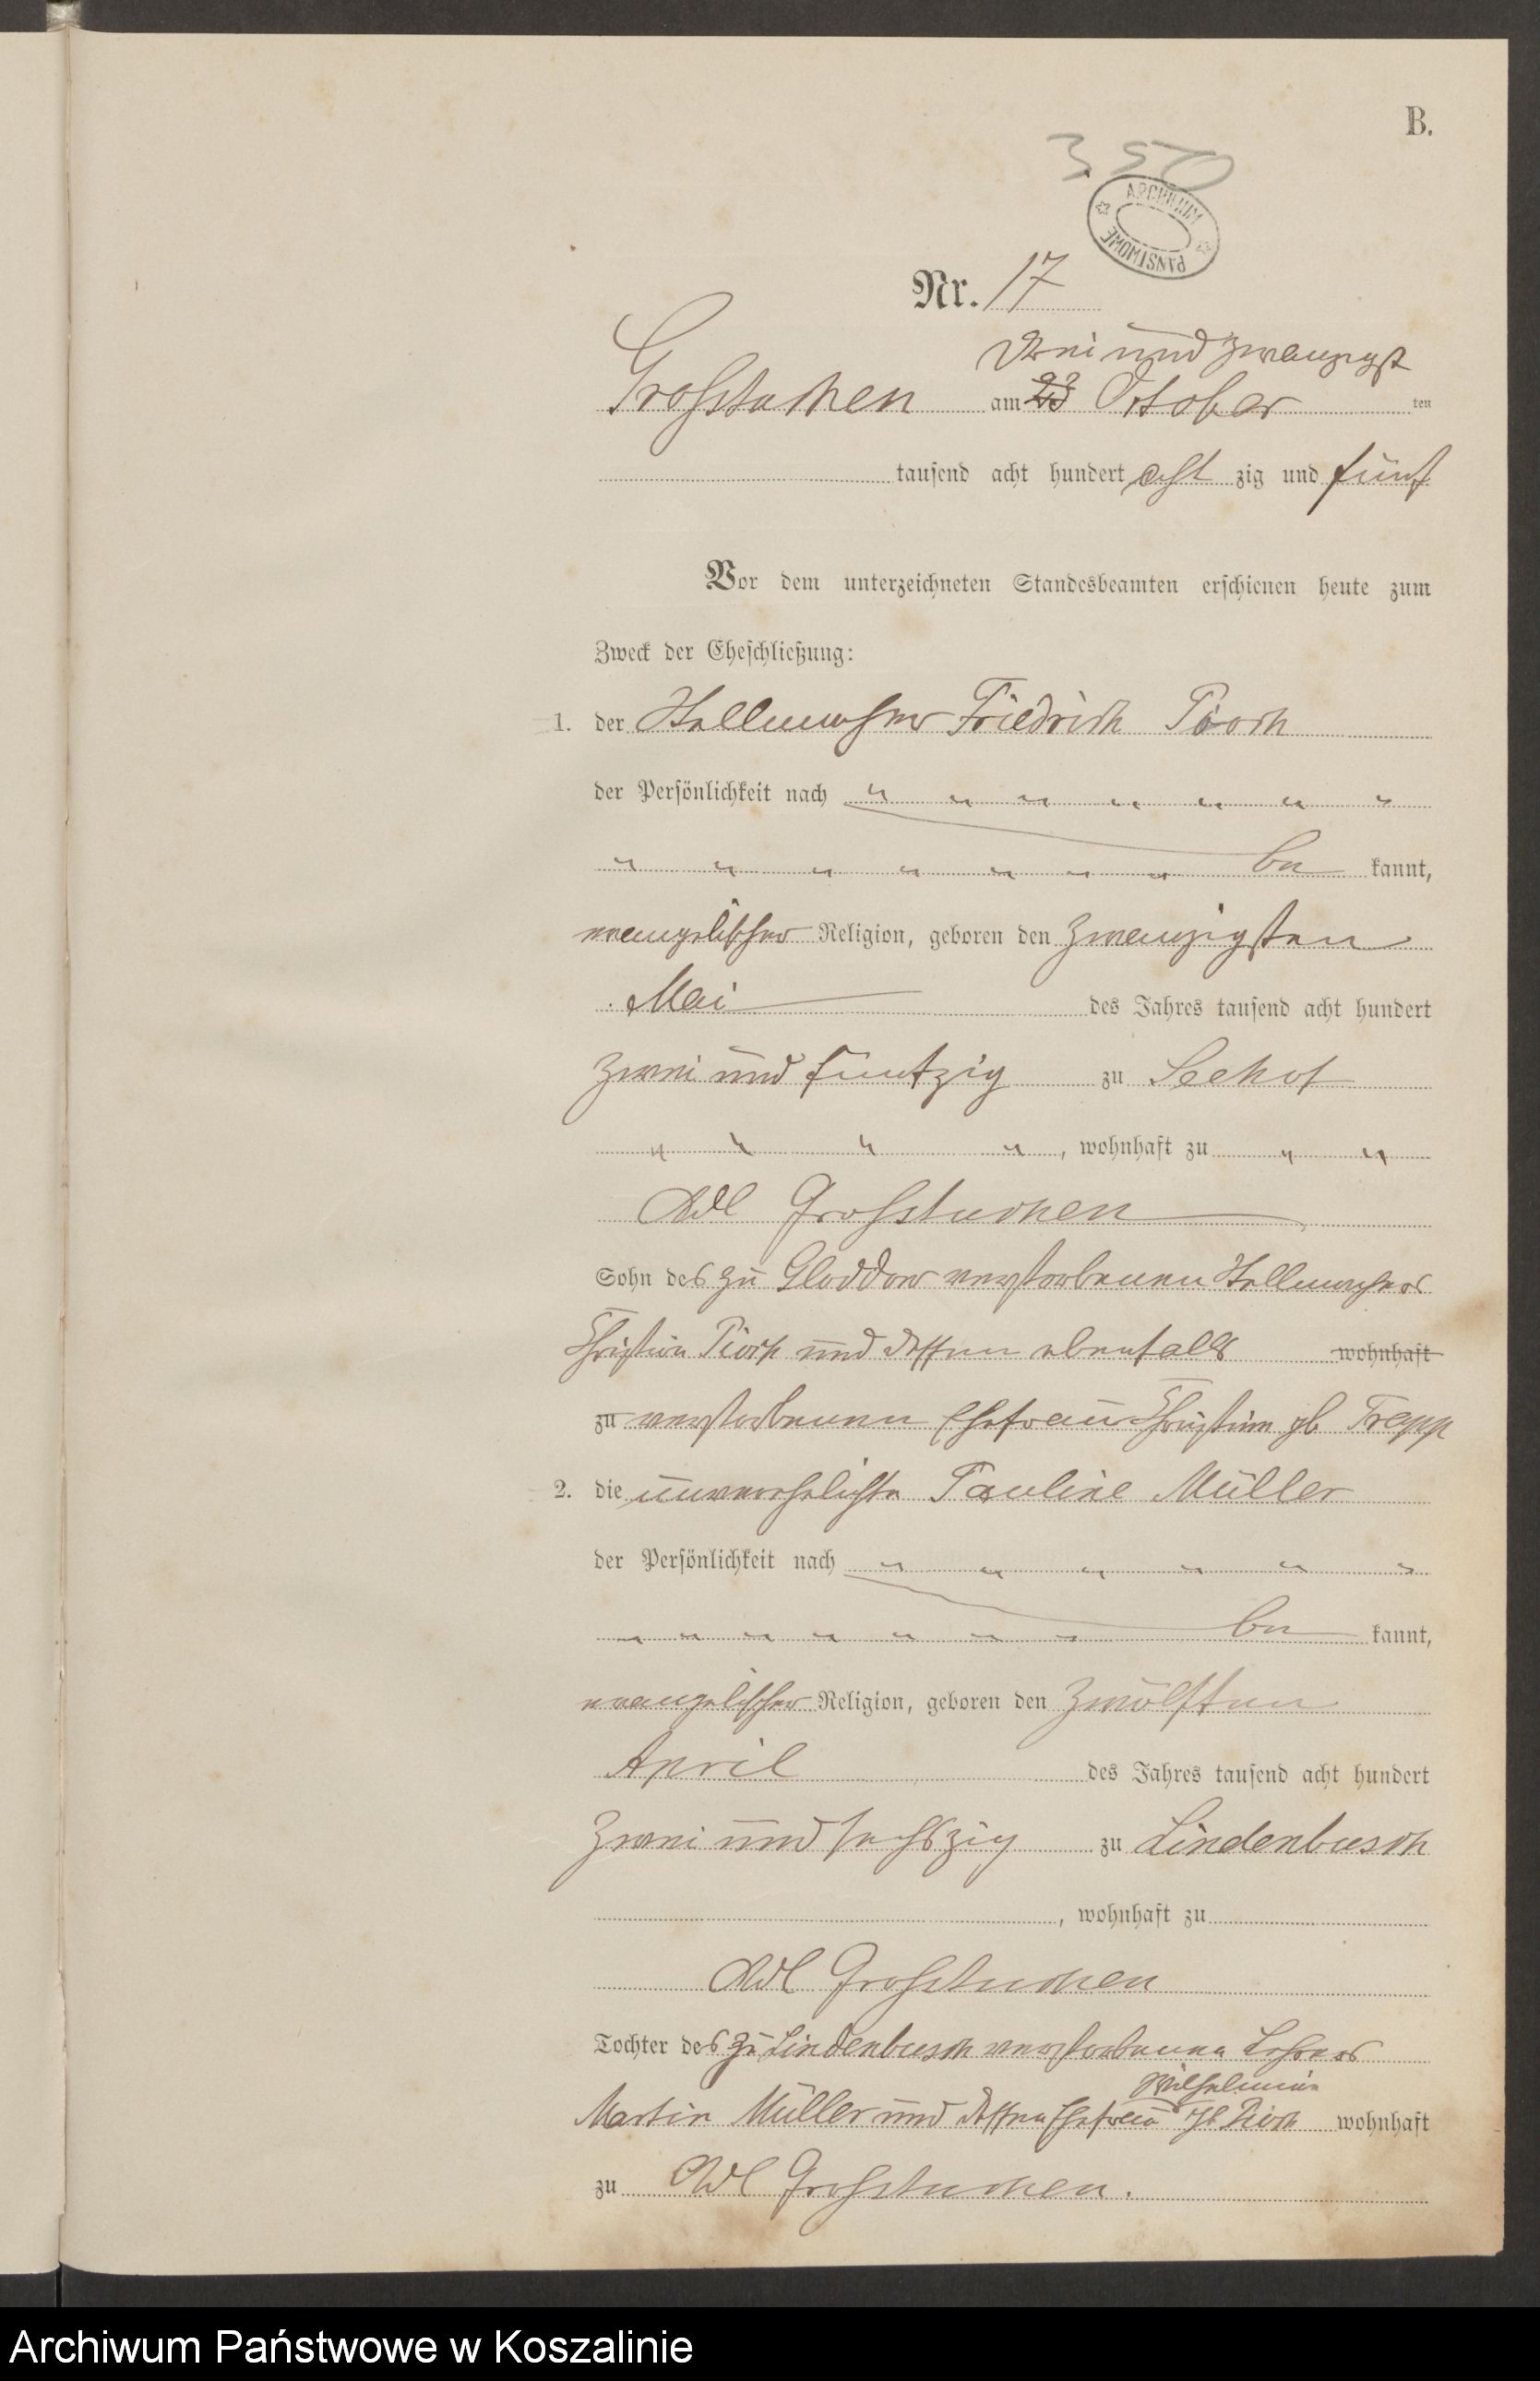 B.
350
ARCHIWUM PAŃSTWOWE
Nr. 17
drei und zwanzigst
Grosstuchen am 23 October ten
tausend acht hundert acht zig und fünf
Vor dem unterzeichneten Standesbeamten erschienen heute zum
Zweck der Eheschließung:
1. der Stellmacher Friedrich Pioch
der Persönlichkeit nach " " " " " " "
" " " " " " " be kannt,
evangelischer Religion, geboren den zwanzigsten
Mai des Jahres tausend acht hundert
zwei und funfzig zu Seehof
" " " " , wohnhaft zu " "
Adl Grosstuchen
Sohn des zu Gloddow verstorbenen Stellmachers
Christian Pioch und dessen ebenfalls wohnhaft
zu verstorbenen Ehefrau Christine gb Trapp
2. die unverehelichte Pauline Müller
der Persönlichkeit nach " " " " " "
" " " " " " " be kannt,
evangelischer Religion, geboren den zwölften
April des Jahres tausend acht hundert
zwei und sechszig zu Lindenbusch
, wohnhaft zu
Adl Grosstuchen
Tochter des zu Lindenbusch verstorbenen Lehrers
Wilhelmine
Martin Müller und dessen Ehefrau gb Pioch wohnhaft
zu Adl Grosstuchen.
Archiwum Państwowe w Koszalinie